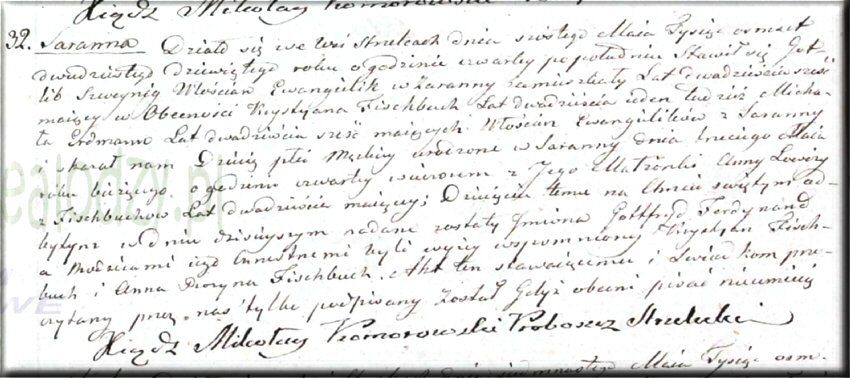 Xiądz Mikołay Komorowski
32. Saranna Działo się we Wsi Strulcach dnia szóstego Maia Tysiąc osmset
dwudziestego dziewiątego roku o godzinie czwartey popołudniu Stawił się Got-
lib Włościan Ewangielik w Saranny zamieszkały Lat dwadzieścia sześć
maiący w Obecności Krystyana Fischbuch Lat dwadzieścia ieden tudzież Micha-
ła Erdmann Lat dwadzieścia sześć maiących Włościan Ewangelików z Saranny
i okazał nam Dziecię płci Męskiey urodzone w Saranny dnia trzeciego Maia
roku bieżącego o godzinie czwartey wieczorem z Jego Małżonki Anny Lowizy
z Fischbuchow Lat dwadzieścia maiącey; Dziecięciu temu na Chrzcie świętym od-
bytym w dniu dzisieyszym nadane zostały Jmiona Gottfryd Ferdynand
a Rodzicami iego Chrzestnemi byli wyżey wspomniony Krystyan Fisch-
buch i Anna Fischbuch. Akt ten stawaiącemu i Swiadkom prze-
czytany przez nas tylko podpisany został Gdyż obecni pisać nieumieią
Xiądz Mikołay Komorowski Proboszcz Strulecki
Maia Tysiąc osm-